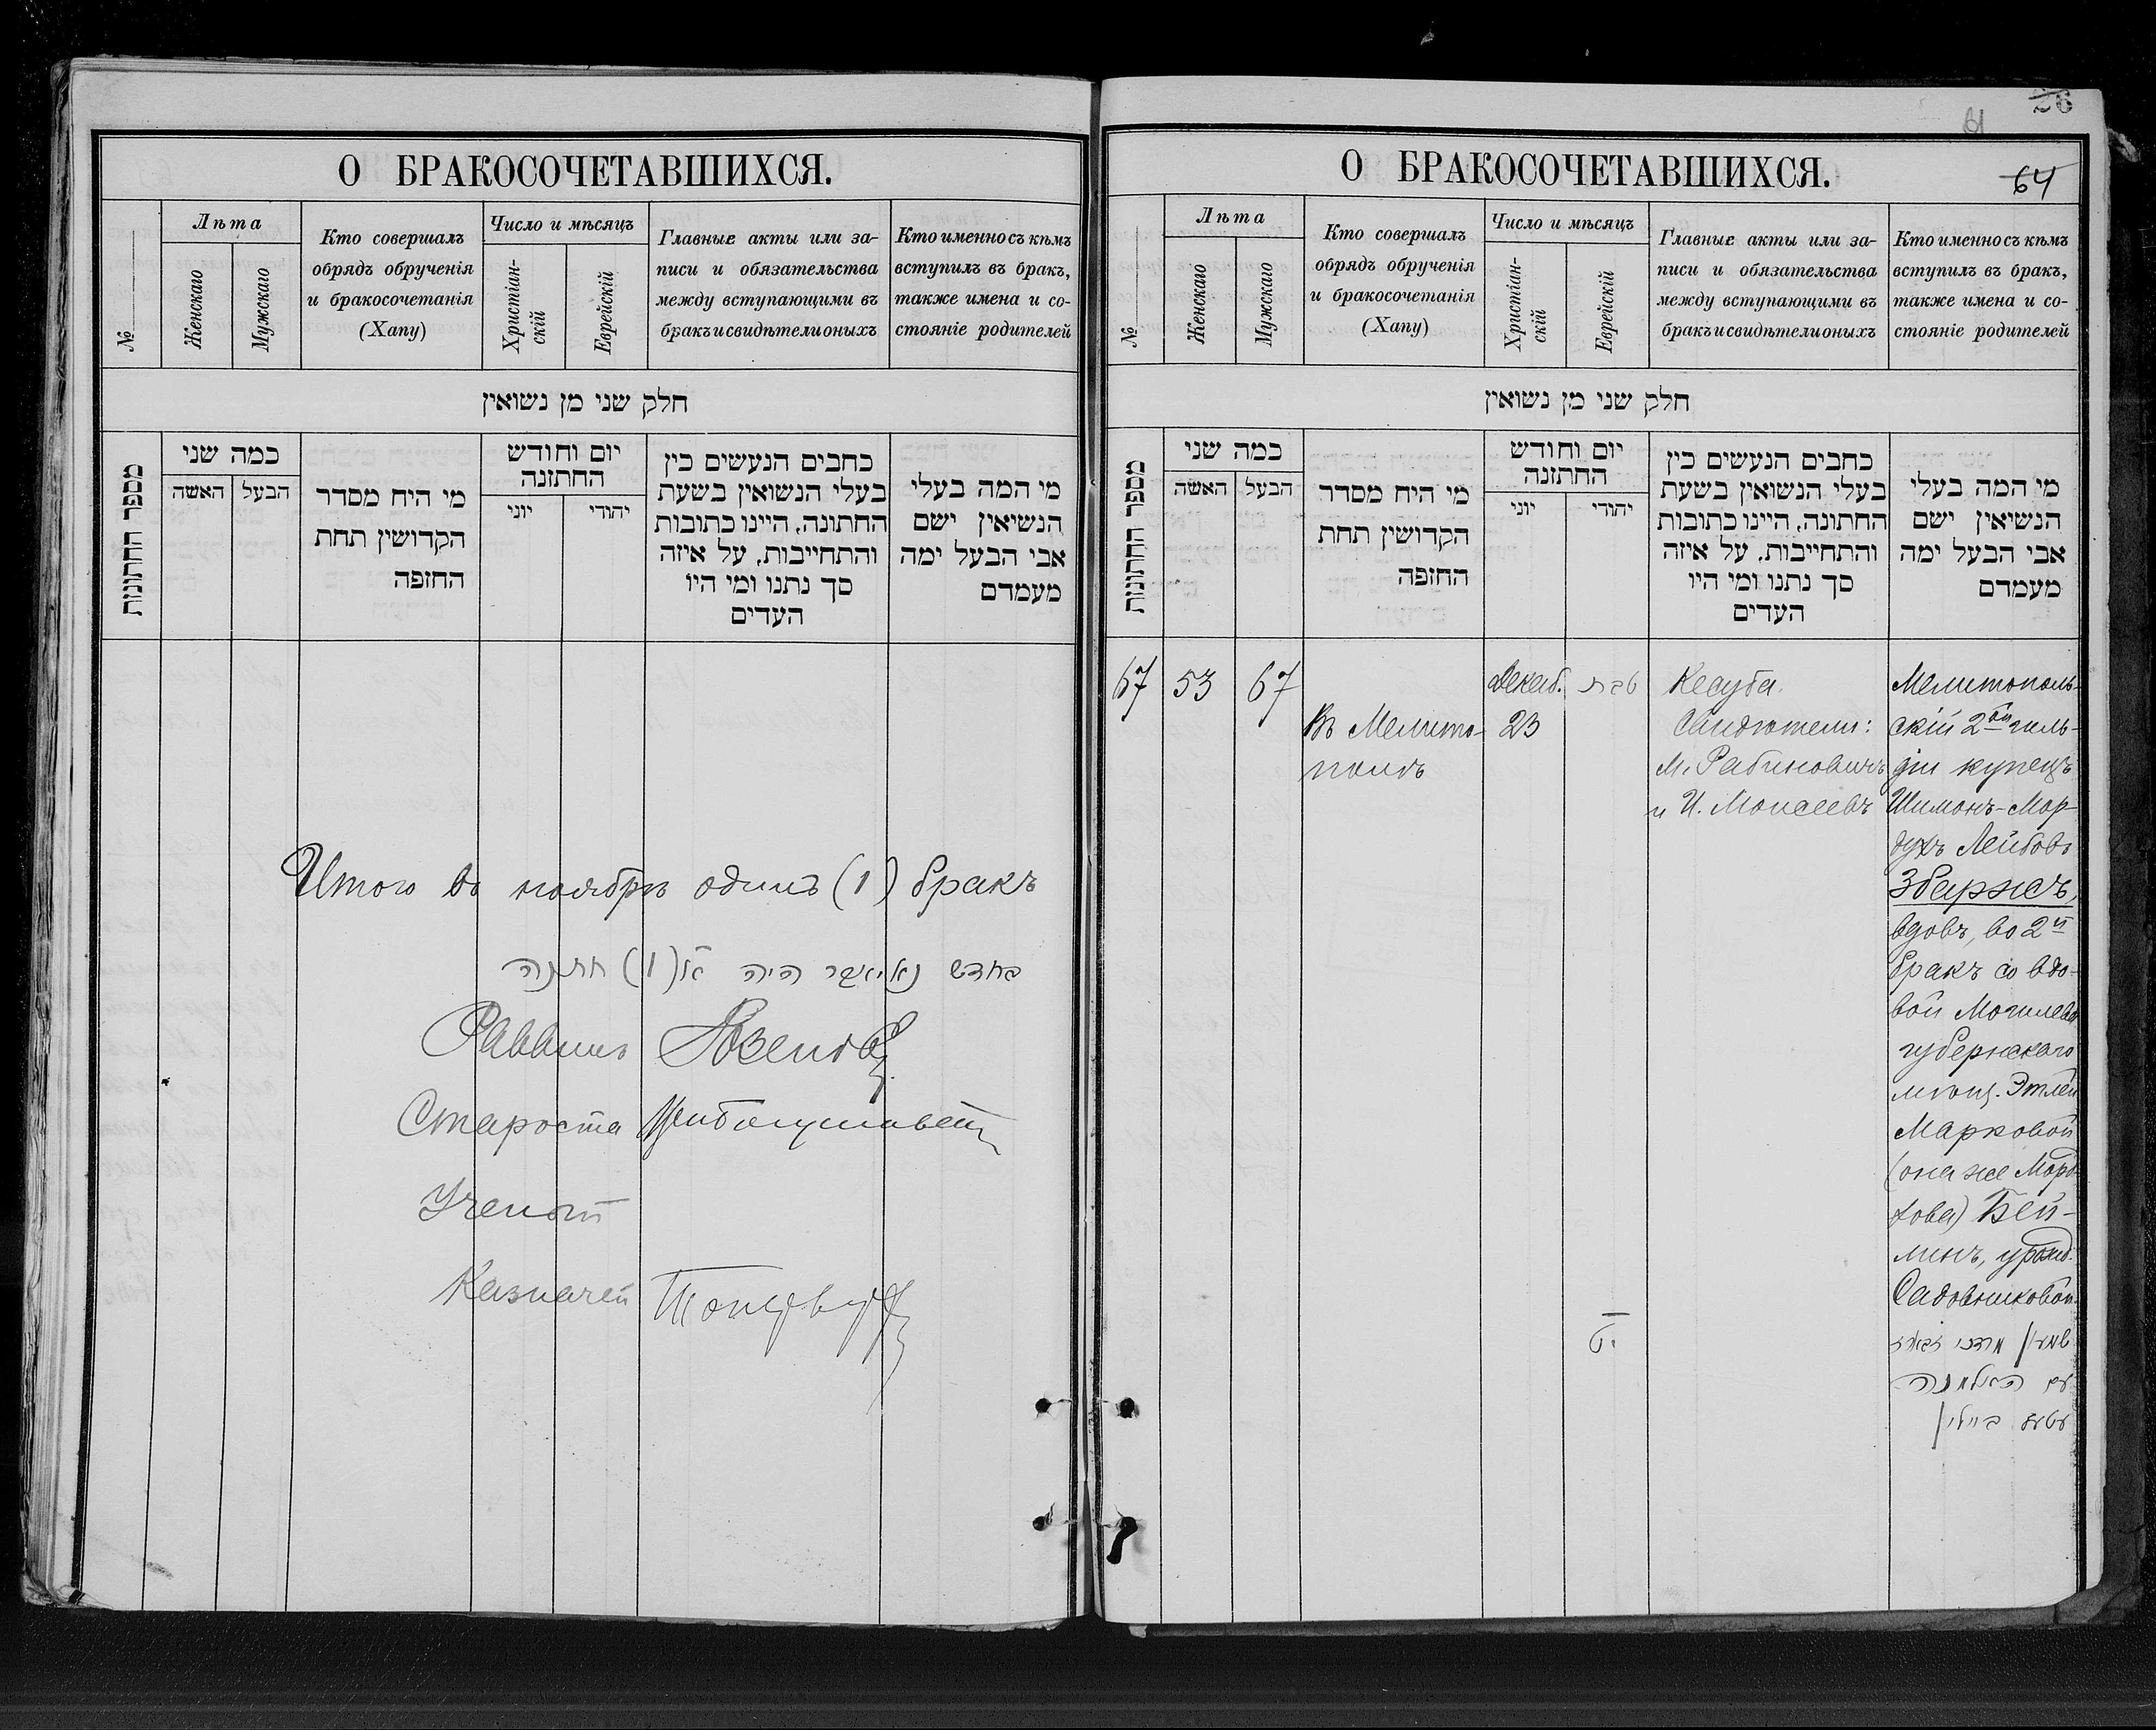 О БРАКОСОЧЕТАВШИХСЯ.
№
Лѣта
Женскаго
Мужскаго
Кто совершалъ
обрядъ обрученія
и бракосочетанія
(Хапу)
Число и мѣсяцъ
Христіан-
скій
Еврейскій
Главные акты или за-
писи и обязательства
между вступающими въ
бракъ и свидѣтели оныхъ
Кто именно съ кѣмъ
вступилъ въ бракъ,
также имена и со-
стояніе родителей
חלק שני מן נשואין
מספר החתונות
כמה שני
האשה
הבעל
מי היח מסדר
הקדושין תחת
החופה
יום וחודש
החתונה
יוני
יהודי
כחבים הנעשים כין
בעלי הנשואין בשעת
החתונה, היינו כתובות
והתחייבות, על איזה
סך נתנו ומי היו
העדים
מי המה בעלי
הנשיאין ישם
אבי הבעל ימה
מעמדם
Итого въ ноябрѣ одинъ (1) бракъ
בחדש נאיאבר היה א(1) חתנה
Раввинъ
Староста
Ученый
Казначей
26
61
О БРАКОСОЧЕТАВШИХСЯ.
64
№
Лѣта
Женскаго
Мужскаго
Кто совершалъ
обрядъ обрученія
и бракосочетанія
(Хапу)
Число и мѣсяцъ
Христіан-
скій
Еврейскій
Главные акты или за-
писи и обязательства
между вступающими въ
бракъ и свидѣтели оныхъ
Кто именно съ кѣмъ
вступилъ въ бракъ,
также имена и со-
стояніе родителей
חלק שני מן נשואין
מספר החתונות
כמה שני
האשה
הבעל
מי היח מסדר
הקדושין תחת
החופה
יום וחודש
החתונה
יוני
יהודי
כחבים הנעשים כין
בעלי הנשואין בשעת
החתונה, היינו כתובות
והתחייבות, על איזה
סך נתנו ומי היו
העדים
מי המה בעלי
הנשיאין ישם
אבי הבעל ימה
מעמדם
67
53
67
Въ Мелито-
полѣ
Декаб.
23
טבת
יט
Кесуба.
Свидѣтели:
М. Рабиновичъ
и И. Моисеевъ
Мелитополь-
скій 2ой гиль-
діи купецъ
Шимонъ-Мор-
духъ Лейбовъ
Збаржъ,
вдовъ, во 2й
бракъ со вдо-
вой Могилевск.
губернскаго
мѣщ. Этлей
Марковой
(она же Морд-
хова) Бей-
линъ, урожд.
Садовниковой.
שמעון מרדכי זבארז
עם האלמנה
עטעל ביילין